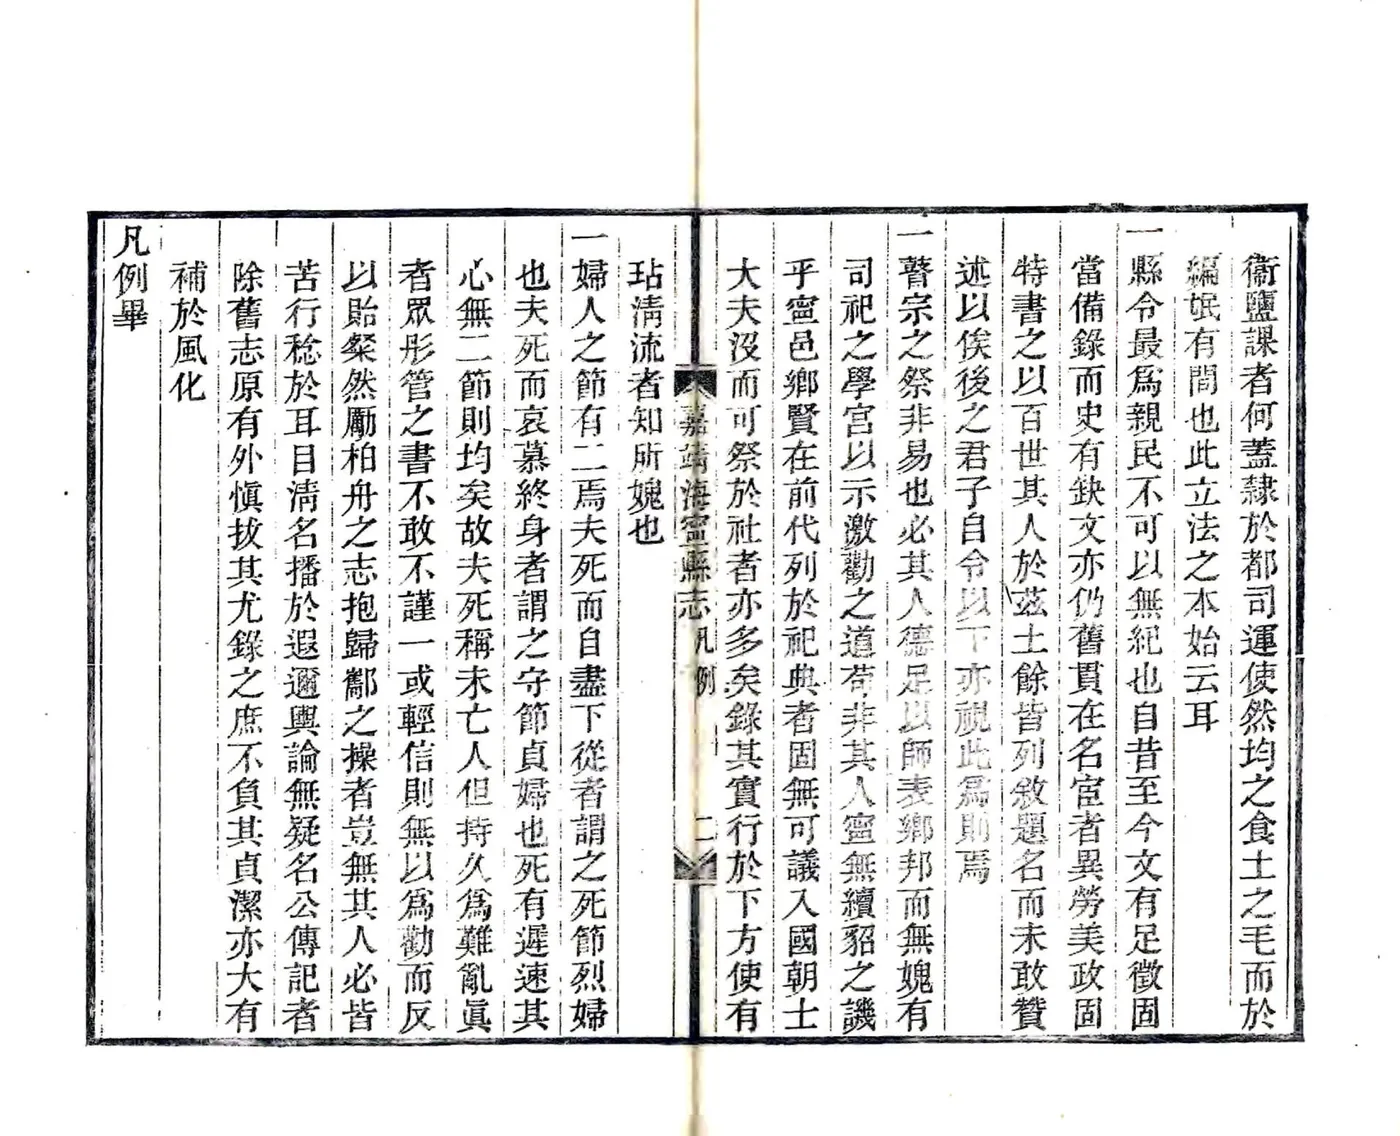 衞鹽課者何蓋隷於都司運使然均之食土之毛而於
編氓有間也此立法之本始云耳
一縣令最爲親民不可以無紀也自昔至今文有足徵固
當備錄而史有缺文亦仍舊貫在名宦者異勞美政固
特書之以百世其人於茲土餘皆列敘題名而未敢贊
述以俟後之君子自令以下亦視此爲則焉
一瞽宗之祭非易也必其人德足以師表鄕邦而無媿有
司祀之學宮以示激勸之道苟非其人寧無續貂之譏
乎寧邑鄕賢在前代列於祀典者固無可議入國朝士
大夫沒而可祭於社者亦多矣錄其實行於下方使有
嘉靖海寧縣志 凡例 二
玷淸流者知所媿也
一婦人之節有二焉夫死而自盡下從者謂之死節烈婦
也夫死而哀慕終身者謂之守節貞婦也死有遲速其
心無二節則均矣故夫死稱未亡人但持久爲難亂眞
者眾彤管之書不敢不謹一或輕信則無以爲勸而反
以貽粲然勵柏舟之志抱歸酅之操者豈無其人必皆
苦行稔於耳目淸名播於遐邇輿論無疑名公傳記者
除舊志原有外愼拔其尤錄之庶不負其貞潔亦大有
補於風化
凡例畢